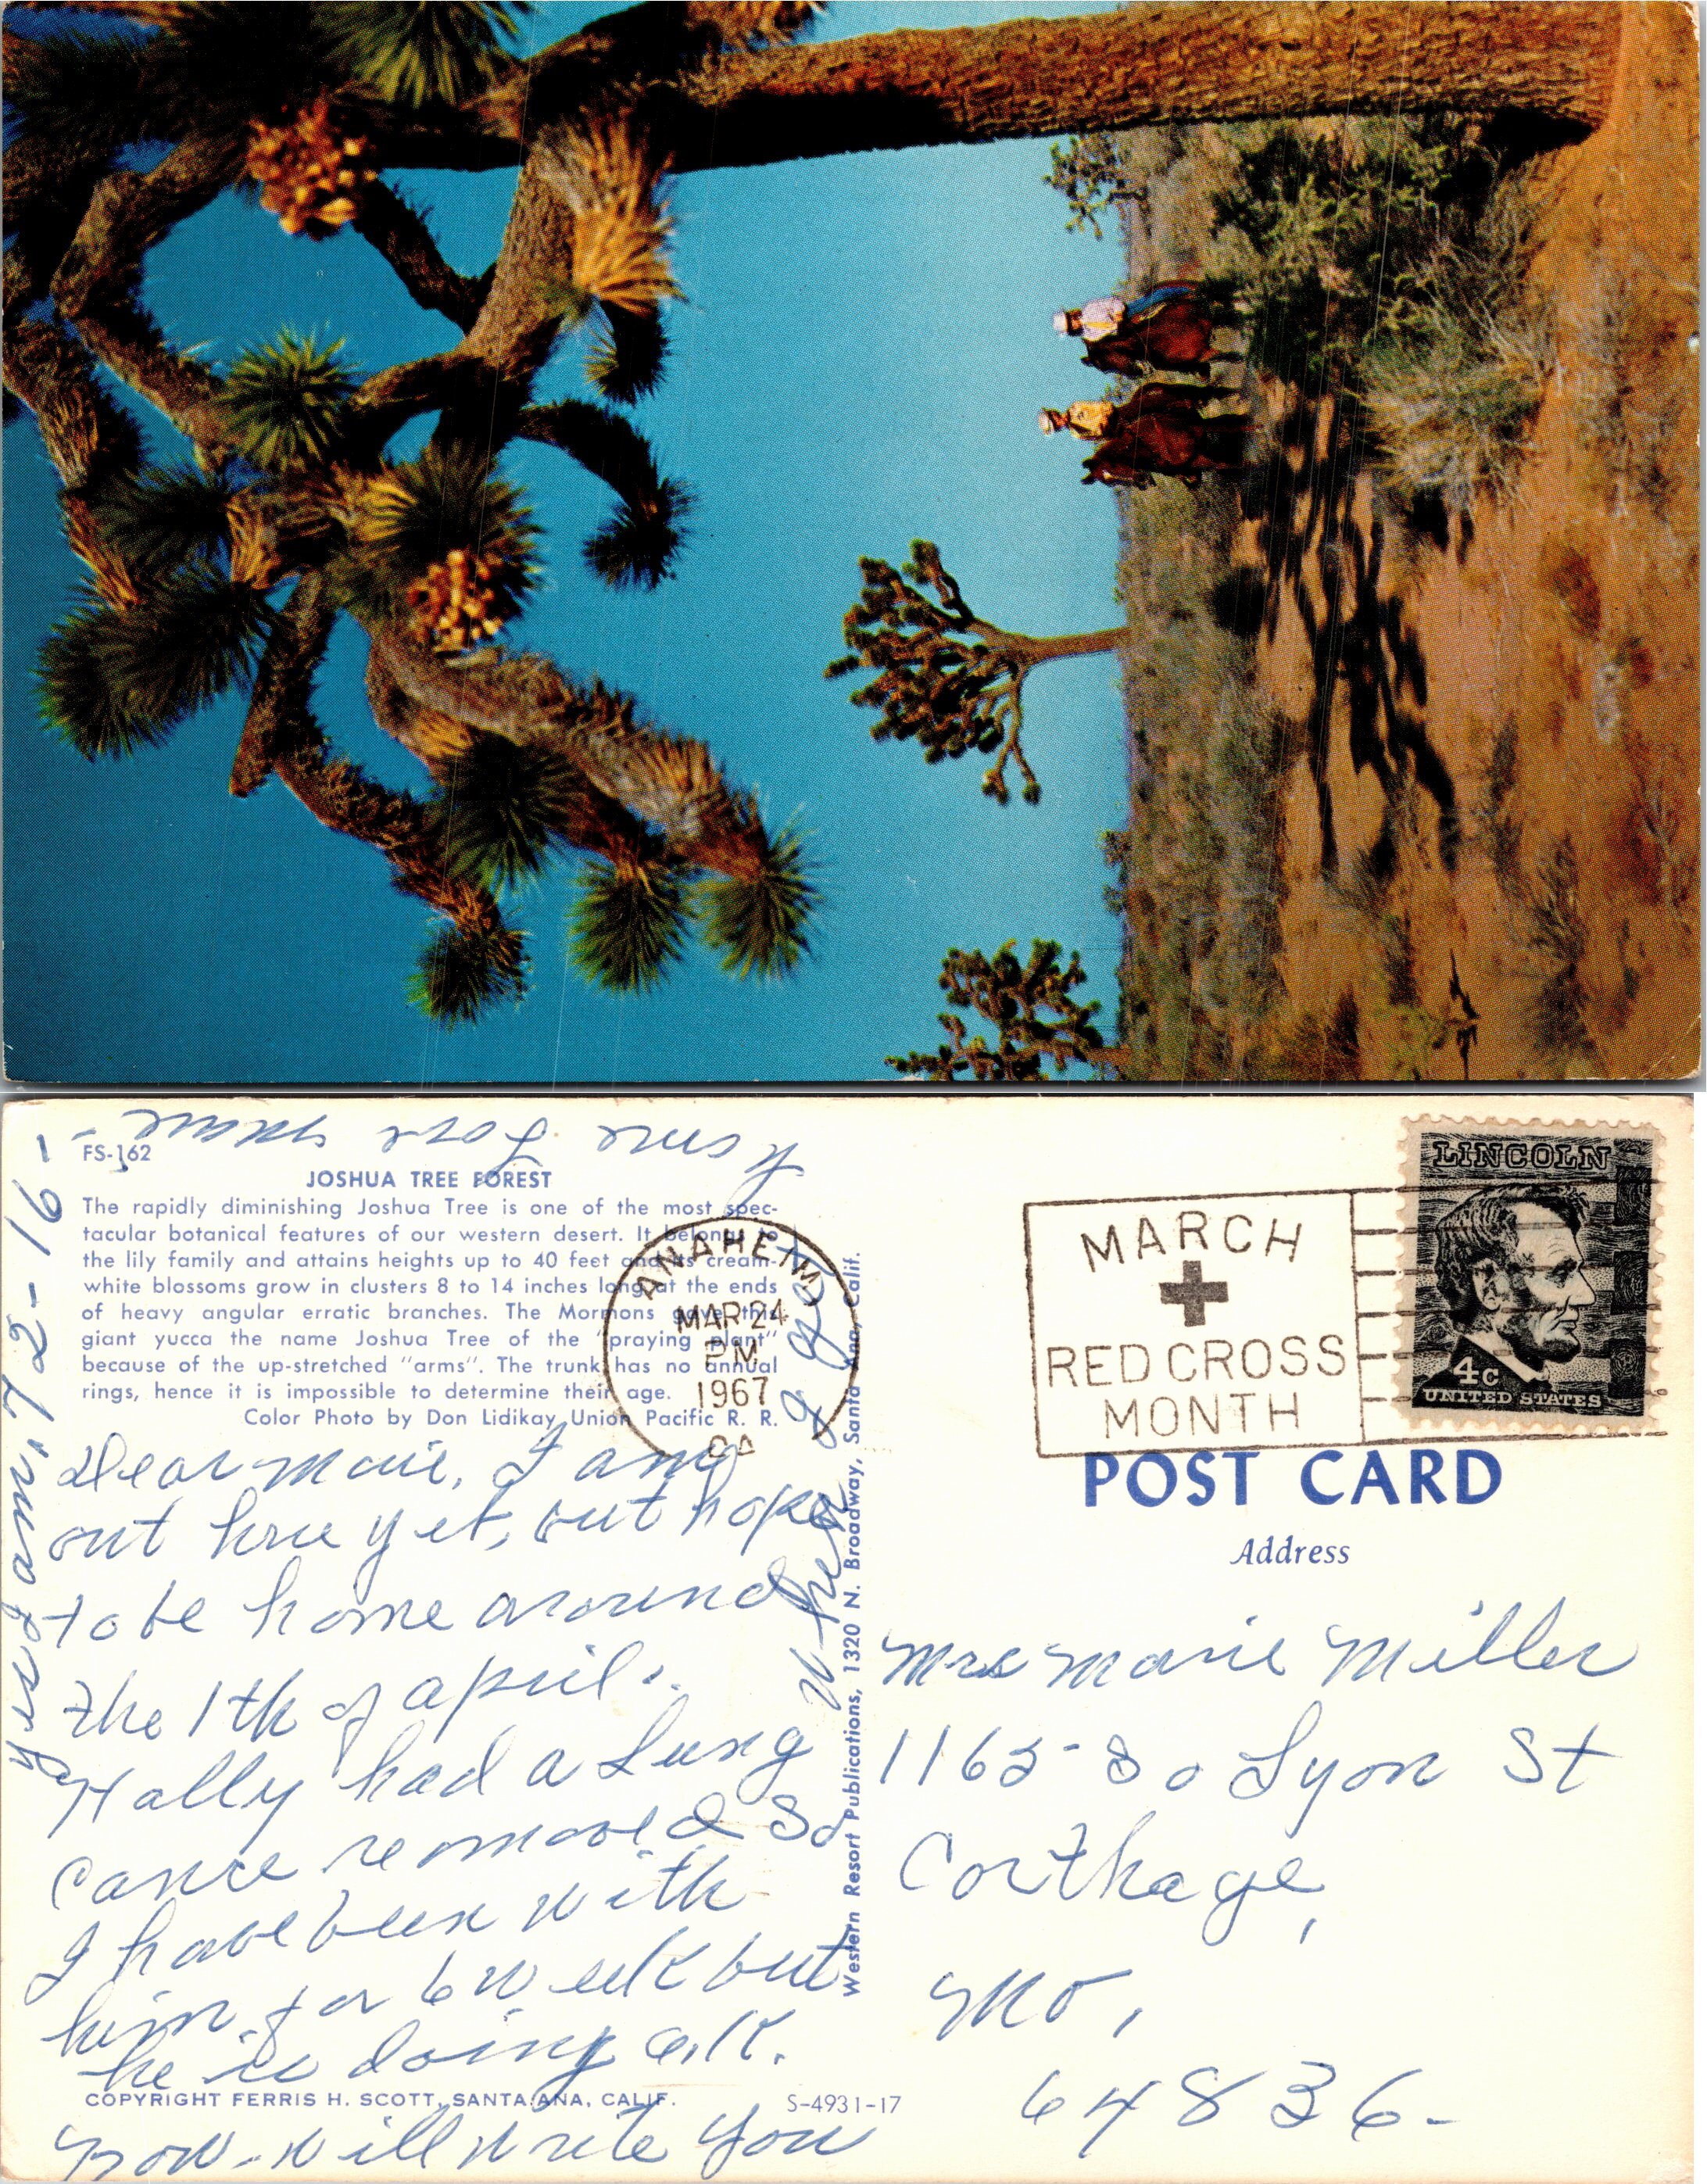 FS-162
JOSHUA TREE FOREST
The rapidly diminishing Joshua Tree is one of the most spec-
tacular botanical features of our western desert. It belongs to
the lily family and attains heights up to 40 feet and its cream-
white blossoms grow in clusters 8 to 14 inches long at the ends
of heavy angular erratic branches. The Mormons gave this
giant yucca the name Joshua Tree of the "praying plant"
because of the up-stretched "arms". The trunk has no annual
rings, hence it is impossible to determine their age.
Color Photo by Don Lidikay Union Pacific R. R.
Dear Marie, I am
out here yet, but hope
to be home around
the 1th of april.
Hally had a Lung
Cance removed So
I have been with
him for 6 week but
he is doing O.K.
COPYRIGHT FERRIS H. SCOTT, SANTA ANA, CALIF.
S-4931-17
now. will write you
when I get
home Love
yes I am, 72-16-
Western Resort Publications, 1320 N. Broadway, Santa Ana, Calif.
ANAHEIM
MAR 24
PM
1967
CA
MARCH
RED CROSS
MONTH
LINCOLN
4c
UNITED STATES
POST CARD
Address
Mrs Marie Miller
1165 So Lyon St
Carthage,
Mo,
64836-